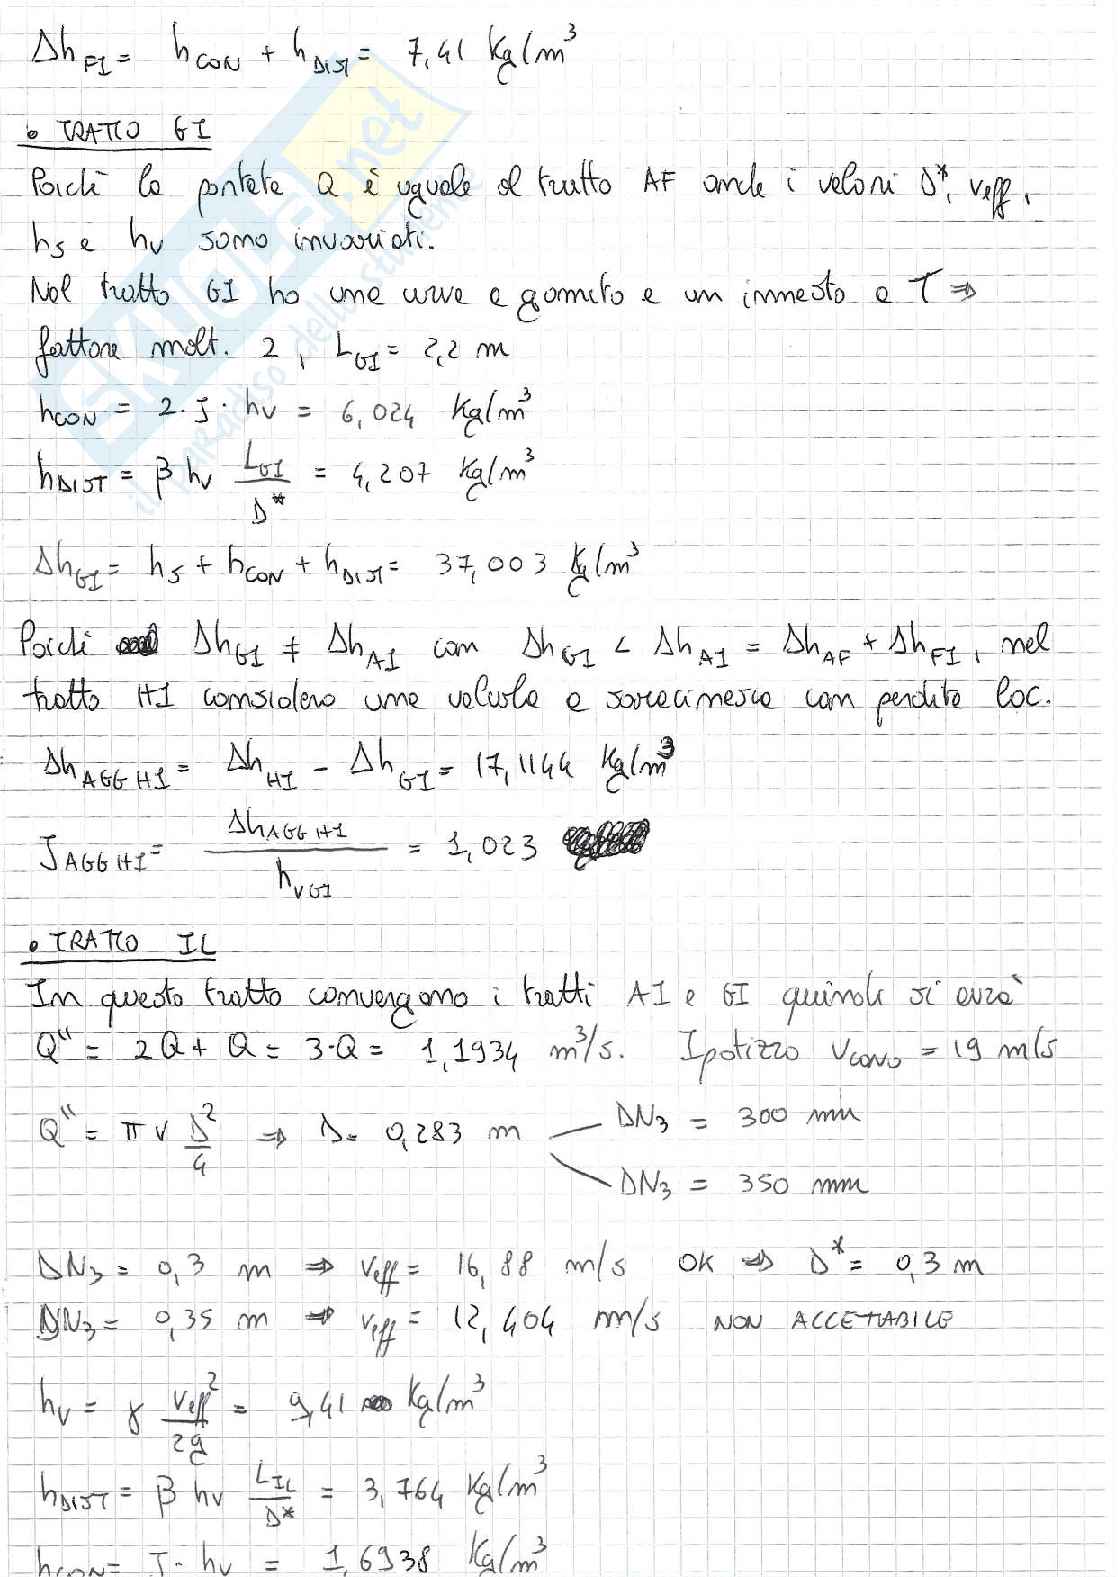 Δh_FI = h_CON + h_DIST = 7,41 Kg/m³
• TRATTO GI
Poiché la portata Q è uguale al tratto AF anche i valori D*, v_eff,
h_s e h_v sono invariati.
Nel tratto GI ho una curva a gomito e un innesto a T ⇒
fattore molt. 2, L_GI = 2,2 m
h_CON = 2·ξ·h_v = 6,024 Kg/m³
h_DIST = β h_v L_GI/D* = 4,207 Kg/m³
Δh_GI = h_s + h_CON + h_DIST = 37,003 Kg/m³
Poiché Δh_GI ≠ Δh_AI con Δh_GI < Δh_AI = Δh_AF + Δh_FI, nel
tratto HI considero una valvola a saracinesca con perdite loc.
Δh_AGG HI = Δh_HI - Δh_GI = 17,1144 Kg/m³
ξ_AGG HI = Δh_AGG HI/h_v GI = 1,023
• TRATTO IL
In questo tratto convergono i tratti AI e GI quindi si avrà
Q" = 2Q + Q = 3·Q = 1,1934 m³/s. Ipotizzo v_CONV = 19 m/s
Q" = π v D²/4 ⇒ D = 0,283 m
DN₃ = 300 mm
DN₃ = 350 mm
DN₃ = 0,3 m ⇒ v_eff = 16,88 m/s OK ⇒ D* = 0,3 m
DN₃ = 0,35 m ⇒ v_eff = 12,404 m/s NON ACCETTABILE
h_v = γ v_eff²/2g = 9,41 Kg/m³
h_DIST = β h_v L_IL/D* = 3,764 Kg/m³
h_CON = ξ·h_v = 1,6938 Kg/m³
SKUOLA.net
il paradiso dello studente